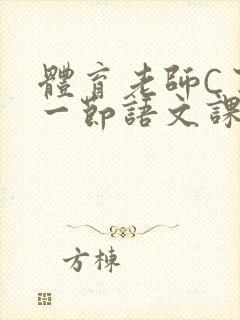 體育老師C
一節語文課
方棟